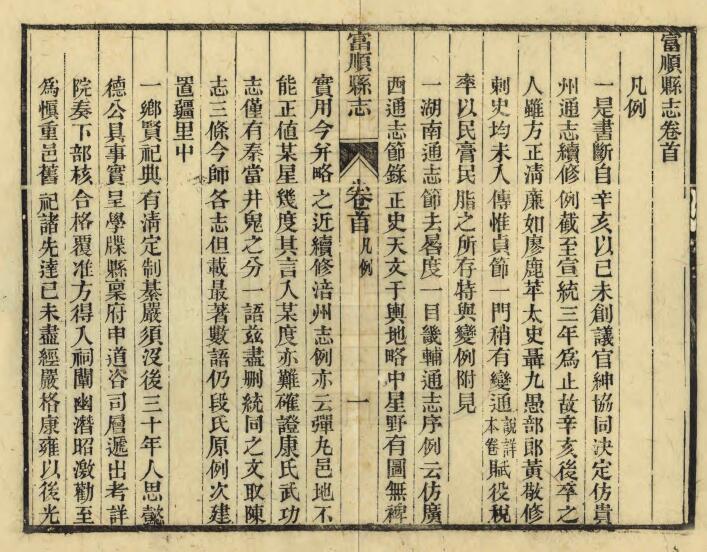 富順縣志卷首
凡例
一是書斷自辛亥以己未創議官紳協同決定仿貴
州通志續修例截至宣統三年爲止故辛亥後卒之
人雖方正淸廉如廖鹿苹太史聶九愚部郎黃敬修
刺史均未入傳惟貞節一門稍有變通說詳本卷賦役稅
率以民膏民脂之所存特與變例附見
一湖南通志節去晷度一目畿輔通志序例云仿廣
西通志節錄正史天文于輿地略中星野有圖無裨
富順縣志 卷首 凡例 一
實用今幷略之近續修涪州志例亦云彈丸邑地不
能正値某星幾度其言入某度亦難確證康氏武功
志僅有秦當井鬼之分一語茲盡删統同之文取陳
志三條今師各志但載最著數語仍段氏原例次建
置疆里中
一鄕賢祀典有淸定制綦嚴須沒後三十年人思懿
德公具事實呈學牒縣稟府申道咨司層遞出考詳
院奏下部核合格覆准方得入祠闡幽潛昭激勸至
爲愼重邑舊祀諸先達已未盡經嚴格康雍以後光